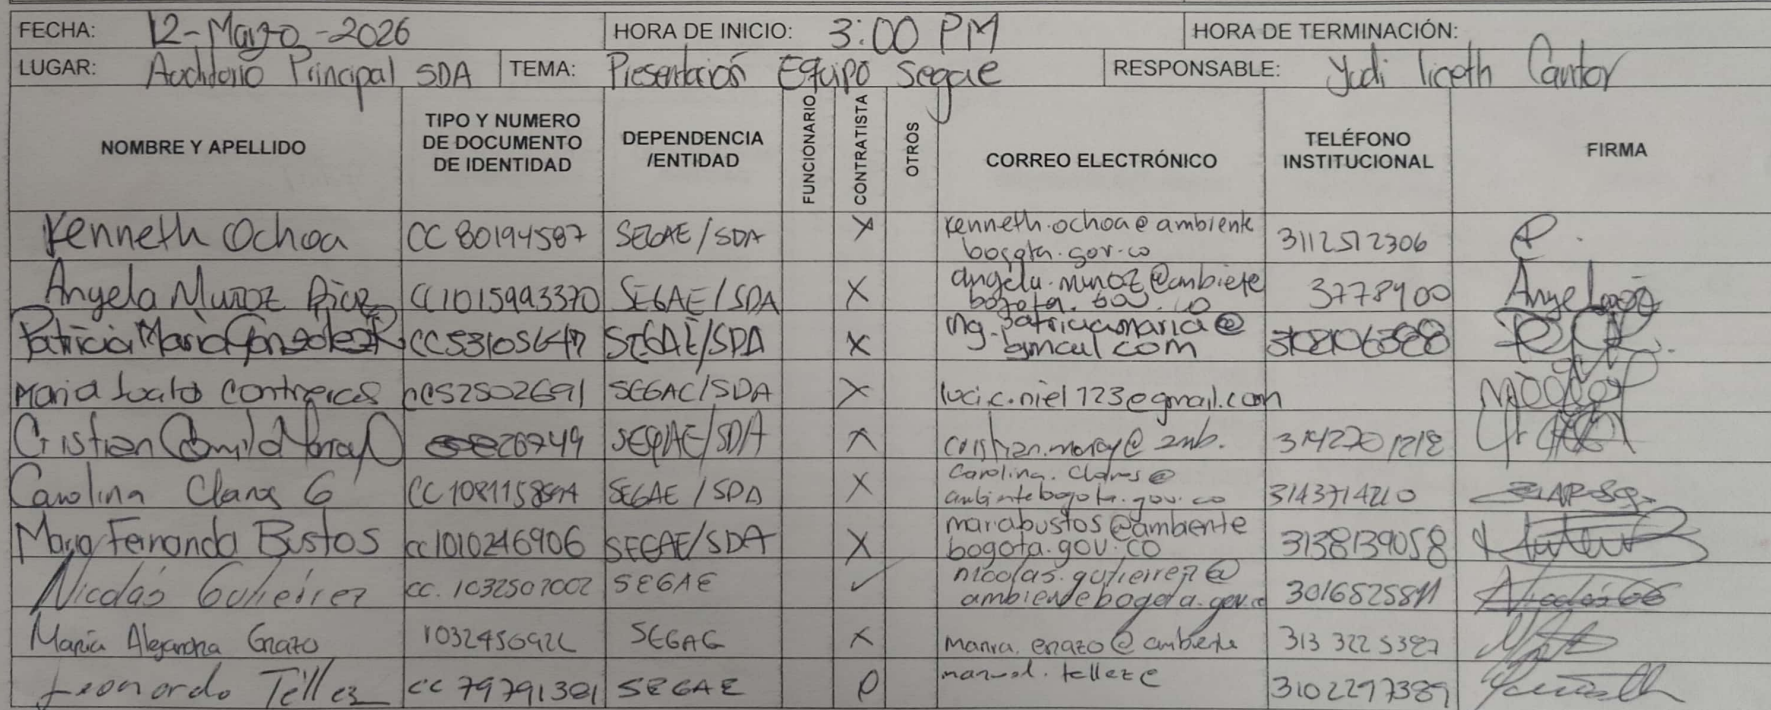 FECHA: 12-Marzo-2026 HORA DE INICIO: 3:00 PM HORA DE TERMINACIÓN:
LUGAR: Auditorio Principal SDA TEMA: Presentación Equipo Segae RESPONSABLE: Yudi liceth Cantor
NOMBRE Y APELLIDO TIPO Y NUMERO DE DOCUMENTO DE IDENTIDAD DEPENDENCIA /ENTIDAD FUNCIONARIO CONTRATISTA OTROS CORREO ELECTRÓNICO TELÉFONO INSTITUCIONAL FIRMA
Kenneth Ochoa CC 80194587 SEGAE/SDA X kenneth.ochoa@ambiente bogota.gov.co 3112512306
Angela Muñoz CC1015993370 SEGAE/SDA X angela.munoz@ambiete bogota. 3778900
Patricia Maria Gonzalez R CC53105647 SEGAE/SDA X ing.patriciamaria@ gmail com
Maria Contreras 52502691 SEGAE/SDA X luci.c.niel123@gmail.com
Cristian Camilo SEGAE/SDA X cristian.moray@amb.
Carolina Claros G SEGAE/SDA X Carolina.Claros@ ambientebogota.gov.co 3143714210
Maria Fernanda Bustos cc1010246906 SEGAE/SDA X mariabustos@ambiente bogota.gov.co 3138139058
Nicolás Gutierrez cc. 1032507002 SEGAE ✓ nicolas.gutierrez@ ambientebogota.gov.c
Maria Alejandra Erazo SEGAE X maria.erazo@ambiente 313 322 5387
Leonardo Téllez CC 79791381 SEGAE telleze 3102297389